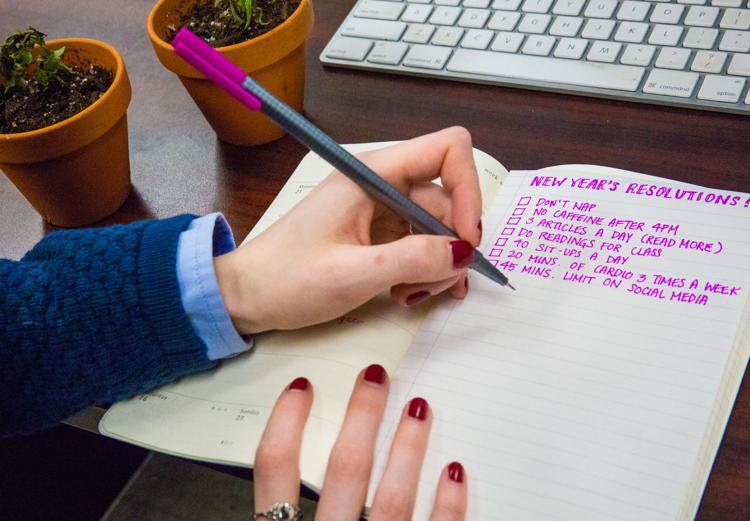 NEW YEAR'S RESOLUTIONS!
DON'T NAP
NO CAFFEINE AFTER 4PM
3 ARTICLES A DAY (READ MORE)
DO READINGS FOR CLASS
40 SIT-UPS A DAY
20 MINS. OF CARDIO 3 TIMES A WEEK
45 MINS. LIMIT ON SOCIAL MEDIA
week
21
26
Sunday
27
command
option